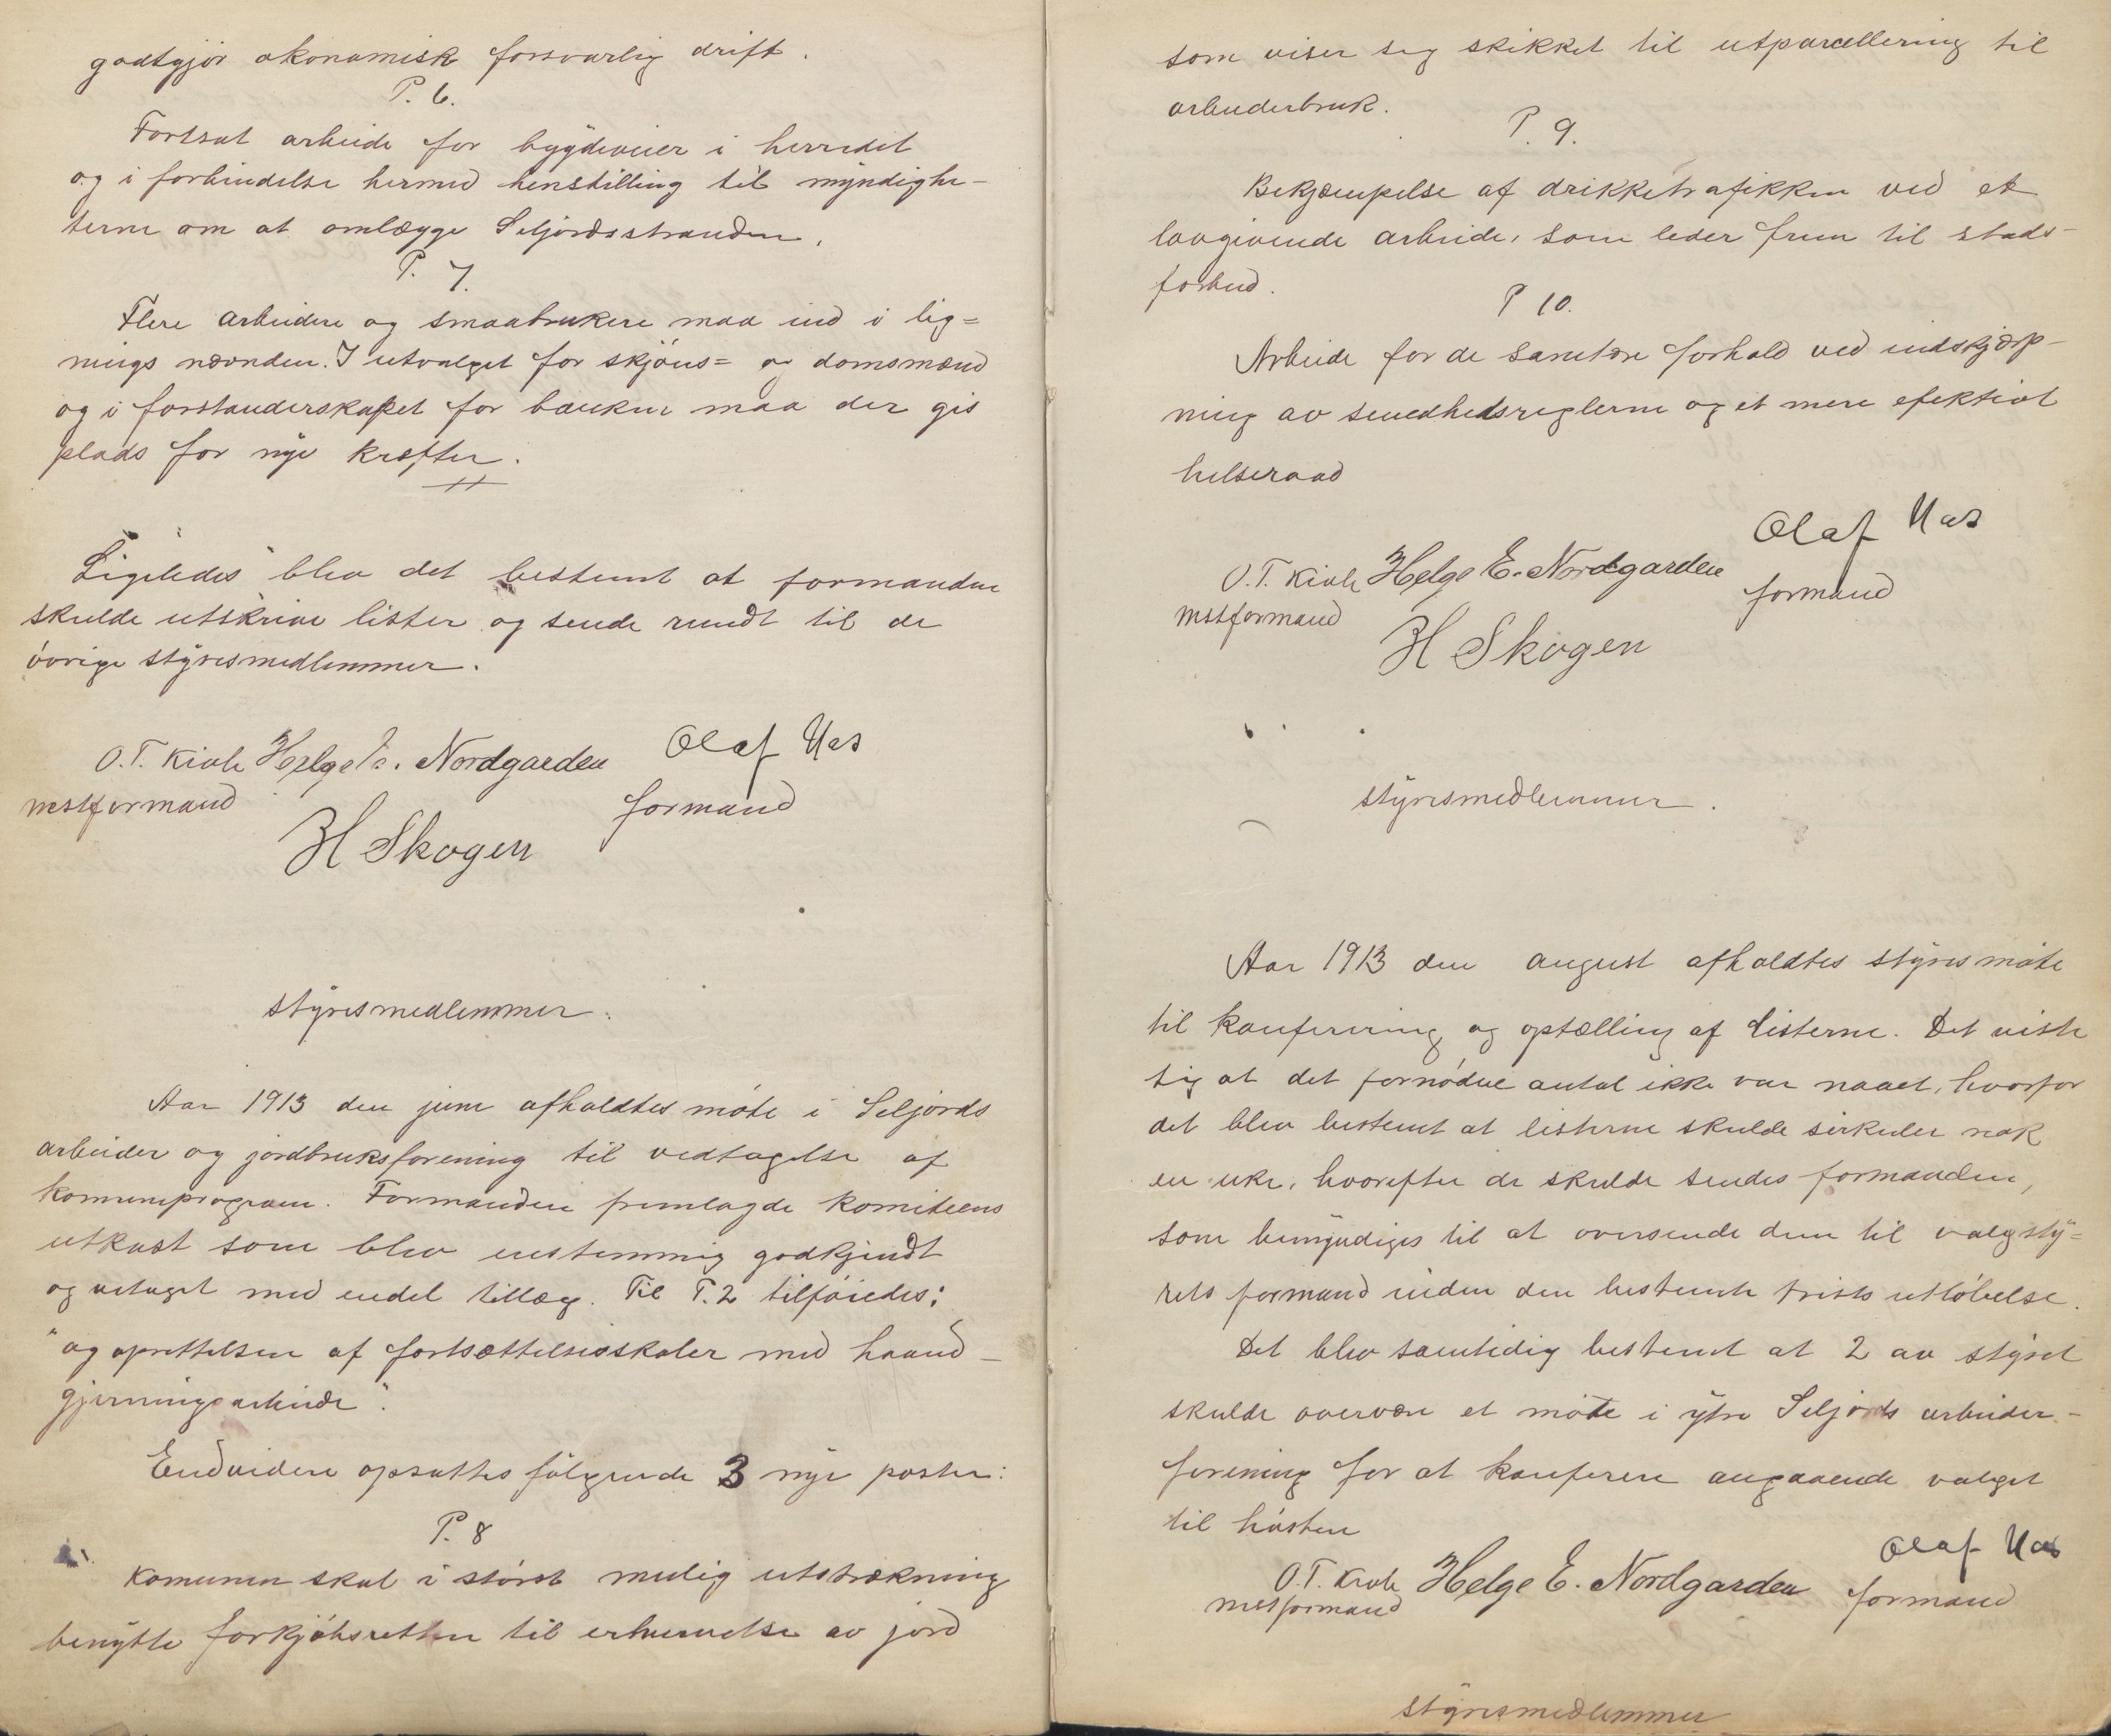 godtgjör økonomisk forsvarlig drift.
P. 6.
Fortsat arbeide for bygdeveier i herredet
og i forbindelse hermed henstilling til myndighe-
terne om at omlægge Seljordsstranden.
P. 7.
Flere arbeidere og smaabrukere maa ind i lig=
nings nævnden. I utvalget for skjöns= og domsmænd
og i forstanderskapet for banken maa der gis
plads for nye kræfter.
Ligeledes blev det bestemt at formanden
skulde utskrive lister og sende rundt til de
övrige styresmedlemmer.
O.T. Kivle Helge E. Nordgarden Olaf Uas
nestformand formand
H Skogen
styresmedlemmer.
Aar 1913 den juni afholdtes möte i Seljords
arbeider og jordbruksforening til vedtagelse af
komuneprogram. Formanden fremlagde komiteens
utkast som blev enstemmig godkjendt
og vetaget med endel tillæg. Til P.2 tilföiedes:
"og oprettelsen af fortsættelsesskoler med haand-
gjerningsarbeide".
Endvidere opsattes fölgende 3 nye poster:
P. 8
Komunen skal i störst mulig utstrækning
benytte forkjöbsretten til erhvervelse av jord
som viser seg skikket til utparcellering til
arbeiderbruk.
P. 9.
Bekjæmpelse af drikketrafikken ved et
lovgivende arbeide, som leder frem til stads-
forbud.
P 10.
Arbeide for de sanitære forhold ved indskjærp-
ning av sundhedsreglerne og et mere efektivt
helseraad
Olaf Uas
O.T. Kivle Helge E. Nordgarden formand
nestformand H Skogen
styresmedlemmer.
Aar 1913 den august afholdtes styresmöte
til konferering og optælling af listerne. Det viste
sig at det fornödne antal ikke var naaet, hvorfor
det blev bestemt at listerne skulde sirkuler nok
en uke, hvorefter de skulde sendes formanden,
som bemyndiges til at oversende dem til valgsty=
rets formand inden den bestemte frists utlöbelse.
Det blev samtidig bestemt at 2 av styret
skulde overvære et möte i ytre Seljords arbeider-
forening for at konferere angaaende valget
til hösten
Olaf Uas
O.T. Kivle Helge E. Nordgarden formand
nestformand
styresmedlemmer